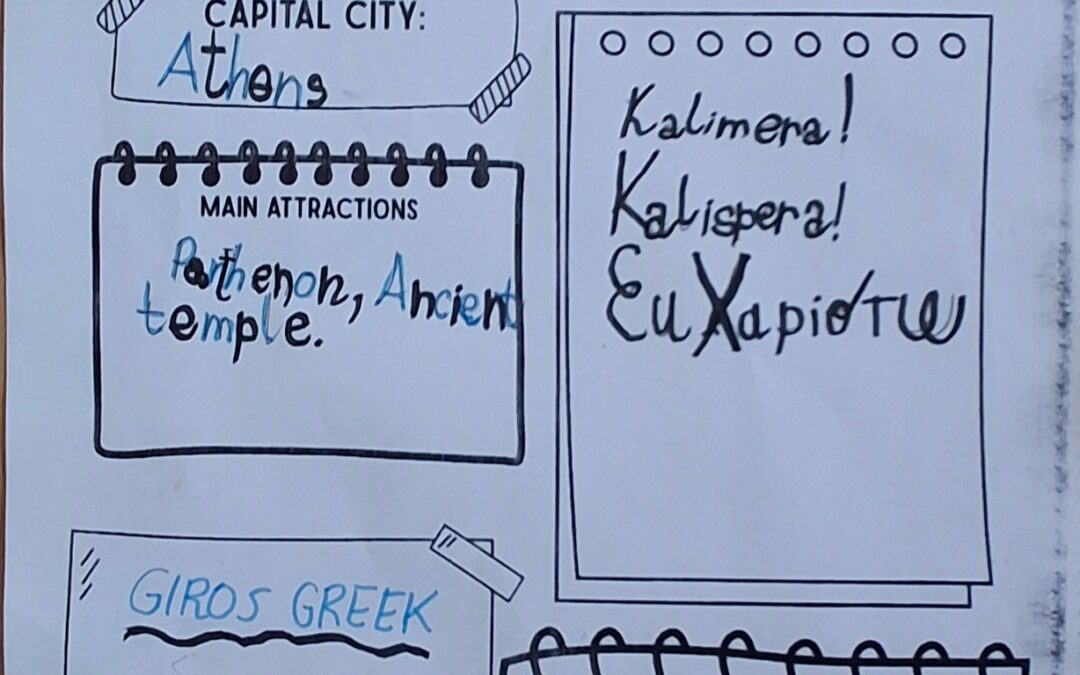 CAPITAL CITY:
Athens
MAIN ATTRACTIONS
Parthenon, Ancient
temple.
Kalimera!
Kalispera!
Ευχαριστω
GIROS GREEK